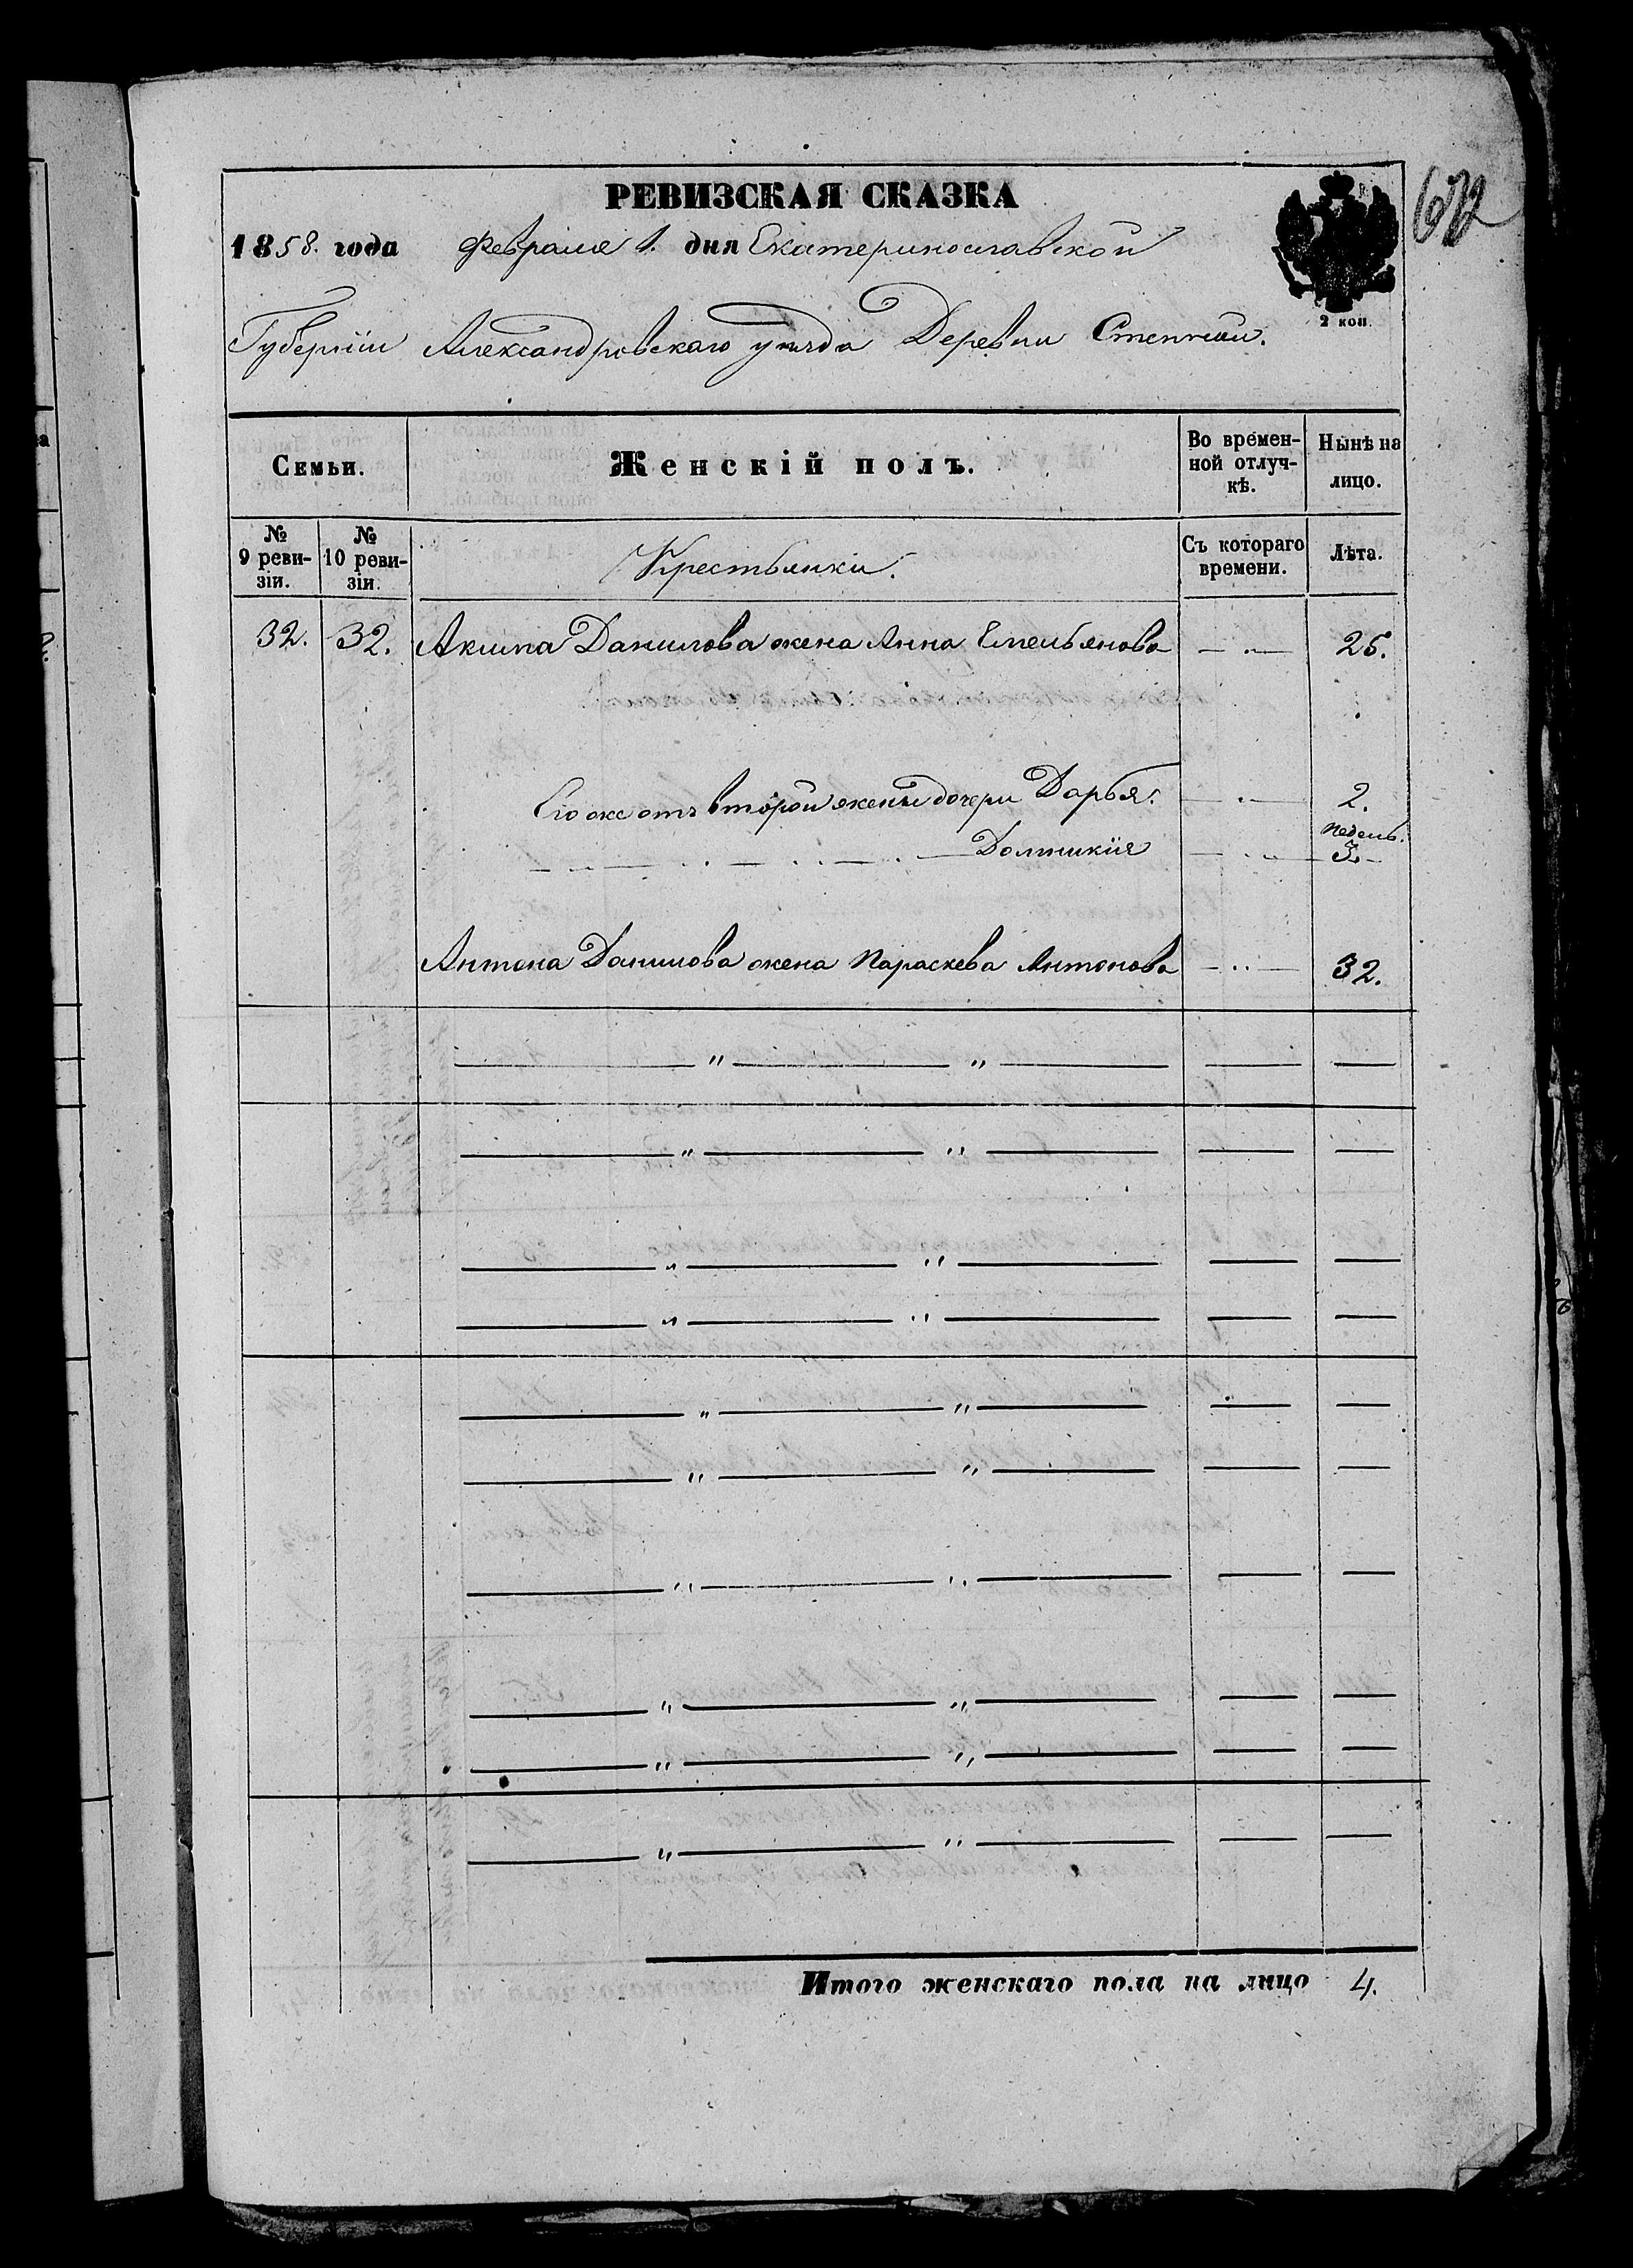 РЕВИЗСКАЯ СКАЗКА
1858. года Февраля 1. дня Екатеринославской
2 коп.
Губерніи Александровскаго уѣзда Деревни Степной.
Семьи.
Женскій полъ.
Во времен-
ной отлуч-
кѣ.
Нынѣ на
лицо.
№
9 реви-
зіи.
№
10 реви-
зіи.
Крестьянки.
Съ котораго
времени.
Лѣта.
32. 32. Акима Данилова жена Анна Емельянова 25.
Его же отъ второй жены дочери Дарья. 2.
недель.
Домникія 3.
Антона Данилова жена Параскева Антонова 32.
Итого женскаго пола на лицо 4.